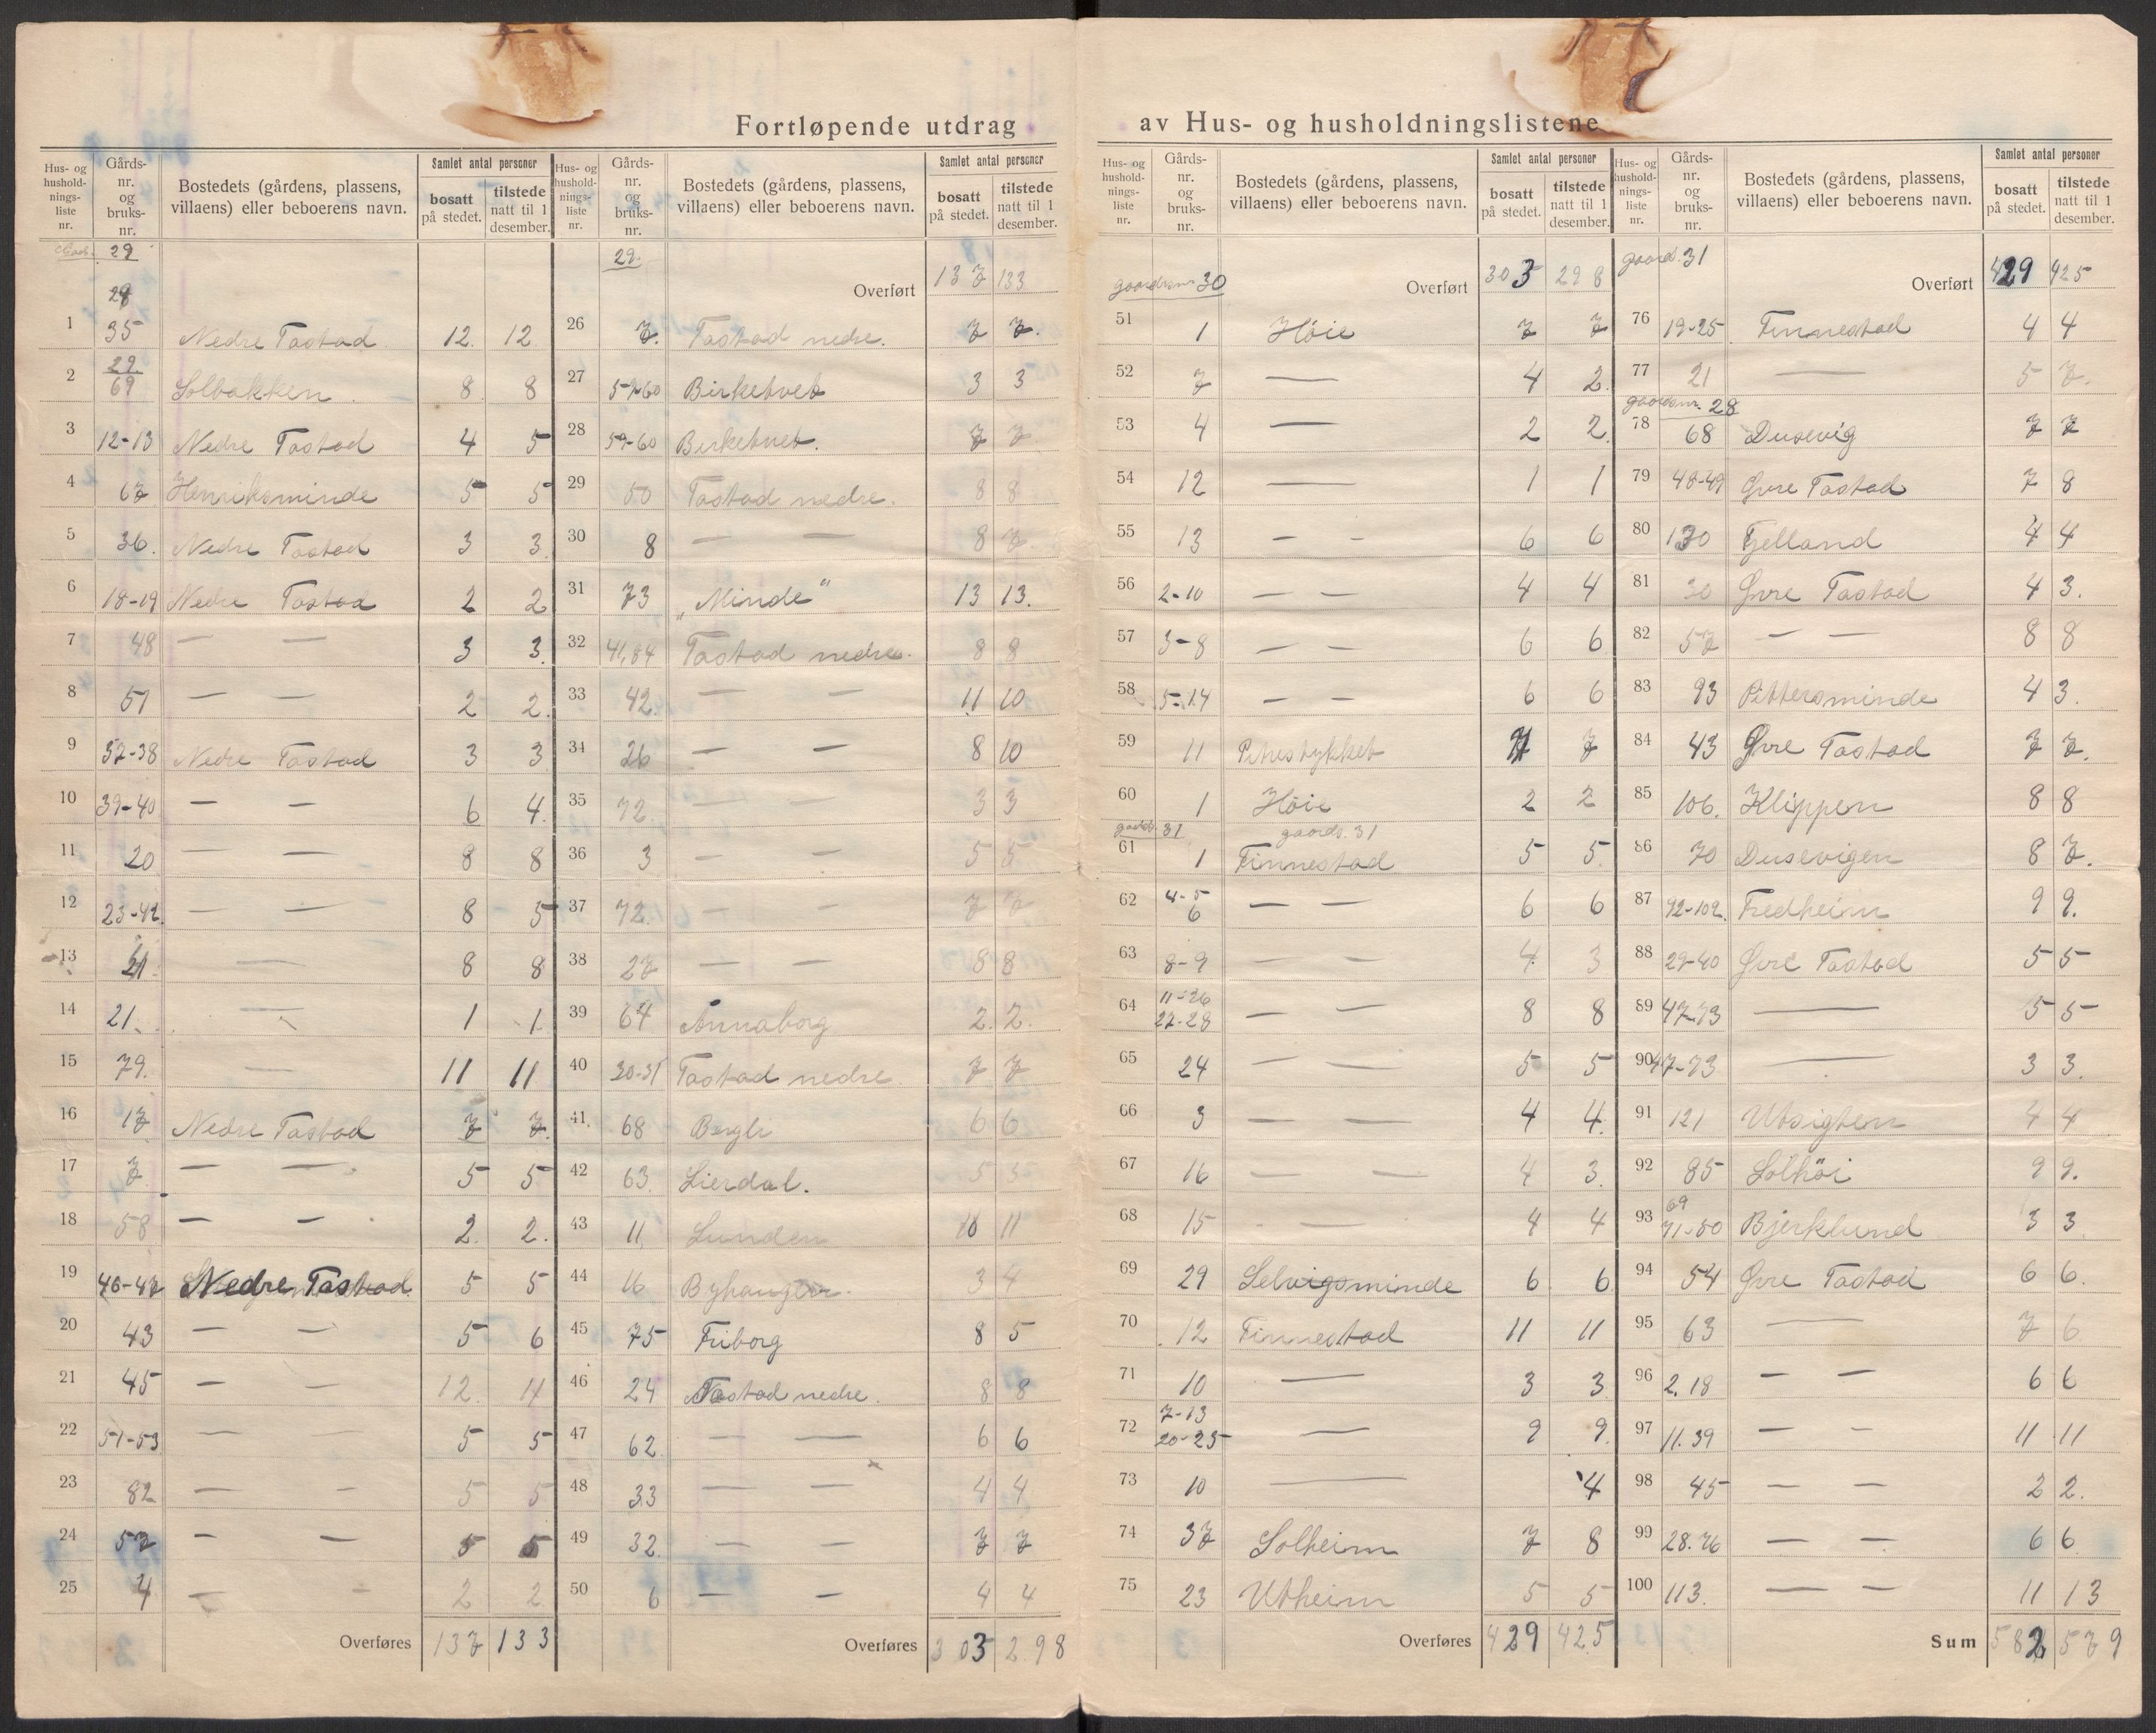 Fortløpende utdrag av Hus- og husholdningslistene
Hus- og husholdnings-liste nr. | Gårds-nr. og bruks-nr. | Bostedets (gårdens, plassens, villaens) eller beboerens navn. | Samlet antal personer | bosatt på stedet. | tilstede natt til 1 desember.
29
1 | 28 35 | Nedre Tastad | 12. | 12
2 | 29 69 | Solbakken | 8 | 8
3 | 12-13 | Nedre Tastad | 4 | 5
4 | 67 | Henriksminde | 5 | 5
5 | 36. | Nedre Tastad | 3 | 3
6 | 18-19 | Nedre Tastad | 2 | 2
7 | 48 | — — | 3 | 3.
8 | 51 | — — | 2 | 2.
9 | 37-38 | Nedre Tastad | 3 | 3
10 | 39-40 | — — | 6 | 4.
11 | 20 | — — | 8 | 8
12 | 23-42 | — — | 8 | 5
13 | 21 | — | 8 | 8
14 | 21. | — | 1 | 1
15 | 79. | — | 11 | 11
16 | 17 | Nedre Tastad | 7 | 7.
17 | 7 | — — | 5 | 5
18 | 58 | — — | 2. | 2.
19 | 46-47 | Nedre Tastad. | 5 | 5
20 | 43 | — — | 5 | 6
21 | 45 | — — | 12. | 11
22 | 51-53 | — — | 5 | 5
23 | 82 | — — | 5 | 5
24 | 57 | — — | 5 | 5
25 | 4 | — — | 2 | 2
Overføres | 137 | 133
Hus- og husholdnings-liste nr. | Gårds-nr. og bruks-nr. | Bostedets (gårdens, plassens, villaens) eller beboerens navn. | Samlet antal personer | bosatt på stedet. | tilstede natt til 1 desember.
29. | Overført | 137 | 133
26 | 7. | Tastad nedre. | 7 | 7.
27 | 59-60 | Birketvet | 3 | 3
28 | 59-60 | Birketvet. | 7 | 7
29 | 50 | Tastad nedre. | 8 | 8
30 | 8 | — — | 8 | 7
31 | 73 | „Minde“ | 13 | 13.
32 | 41,84 | Tastad nedre. | 8 | 8
33 | 42. | — — | 11 | 10
34 | 26 | — — | 8 | 10
35 | 72. | — — | 3 | 3
36 | 3 | — — | 5 | 5
37 | 72. | — — | 7 | 7
38 | 27 | — — | 8 | 8
39 | 64 | Annaborg | 2. | 2.
40 | 30-31 | Tastad nedre. | 7 | 7
41. | 68 | Bergli | 6 | 6
42 | 63. | Lierdal. | 5 | 5
43 | 11 | Lunden | 10 | 11
44 | 16 | Byhaugen. | 3 | 4
45 | 75 | Friborg | 8 | 5
46 | 24 | Tastad nedre. | 8 | 8
47 | 62. | — — | 6 | 6
48 | 33 | — — | 4 | 4
49 | 32. | — — | 7 | 7
50 | 6 | — — | 4 | 4
Overføres | 303 | 298
Hus- og husholdnings-liste nr. | Gårds-nr. og bruks-nr. | Bostedets (gårdens, plassens, villaens) eller beboerens navn. | Samlet antal personer | bosatt på stedet. | tilstede natt til 1 desember.
gaardsnr 30 | Overført | 303 | 298
51 | 1 | Høie | 7 | 7
52 | 7 | — | 4 | 2.
53 | 4 | — | 2 | 2.
54 | 12 | — | 1 | 1
55 | 13 | — - | 6 | 6
56 | 2-10 | — — | 4 | 4
57 | 3-8 | — — | 6 | 6
58 | 5-14 | — — | 6 | 6
59 | 11 | Petrestykket | 7 | 7
60 | 1 | Høie | 2 | 2
gaards. 31 | gaards. 31
61 | 1 | Finnestad | 5 | 5.
62 | 4-5 6 | — — | 6 | 6
63 | 8-9 | — — | 4. | 3
64 | 11-26 27-28 | — — | 8 | 8
65 | 24 | — — | 5 | 5
66 | 3 | — — | 4 | 4.
67 | 16 | — — | 4 | 3.
68 | 15 | - — | 4 | 4
69 | 29 | Selvigsminde | 6 | 6
70 | 12 | Finnestad | 11 | 11
71 | 10 | — | 3 | 3
72 | 7-13 20-25 | — | 9 | 9
73 | 10 | — | 4
74 | 37 | Solheim | 7 | 8
75 | 23 | Utheim | 5 | 5
Overføres | 429 | 425
Hus- og husholdnings-liste nr. | Gårds-nr. og bruks-nr. | Bostedets (gårdens, plassens, villaens) eller beboerens navn. | Samlet antal personer | bosatt på stedet. | tilstede natt til 1 desember.
gaard. 31 | Overført | 429 | 425
76 | 19-25 | Finnestad | 4 | 4
77 | 21 | — | 5 | 7.
gaardsnr. 28
78 | 68 | Dusevig | 7 | 7
79 | 48-49 | Øvre Tastad | 7 | 8
80 | 130 | Fjelland | 4 | 4
81 | 30 | Øvre Tastad | 4 | 3.
82 | 57 | — — | 8 | 8
83 | 93 | Pittersminde | 4 | 3.
84 | 43 | Øvre Tastad | 7 | 7.
85 | 106. | Klippen | 8 | 8
86 | 70 | Dusevigen | 8 | 7.
87 | 92-102. | Fredheim | 9 | 9.
88 | 29-40 | Øvre Tastad | 5 | 5
89 | 47-73 | — | 5 | 5
90 | 47-73 | — | 3 | 3.
91 | 121 | Utsigten | 4 | 4
92 | 85 | Solhöi | 9 | 9.
93 | 69 71-80 | Bjerklund | 3 | 3
94 | 54 | Øvre Tastad | 6 | 6.
95 | 63 | — | 7 | 6
96 | 2.18 | — — | 6 | 6
97 | 11.39 | — — | 11 | 11
98 | 45 | — — | 2 | 2.
99 | 28.76 | — — | 6 | 6
100 | 113. | — — | 11 | 13
Sum | 582 | 579